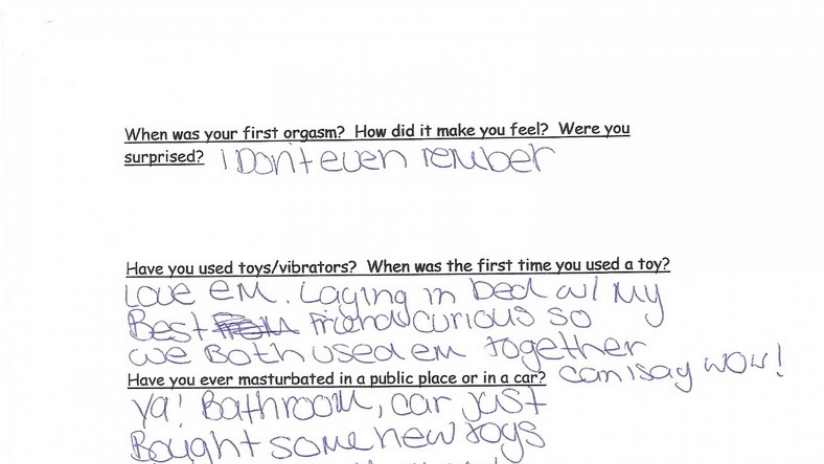 When was your first orgasm? How did it make you feel? Were you
surprised? I Don't even rember
Have you used toys/vibrators? When was the first time you used a toy?
Love em. Laying in bed w/ my
Best friend curious so
we Both used em together
Have you ever masturbated in a public place or in a car? can i say wow!
Ya! Bathroom, car just
Bought some new toys